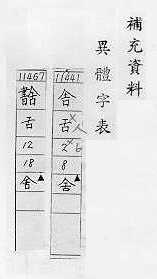 補充資料
異體字表
11441
舌人
2 6
8
舍
11467
舌
12
18
舍